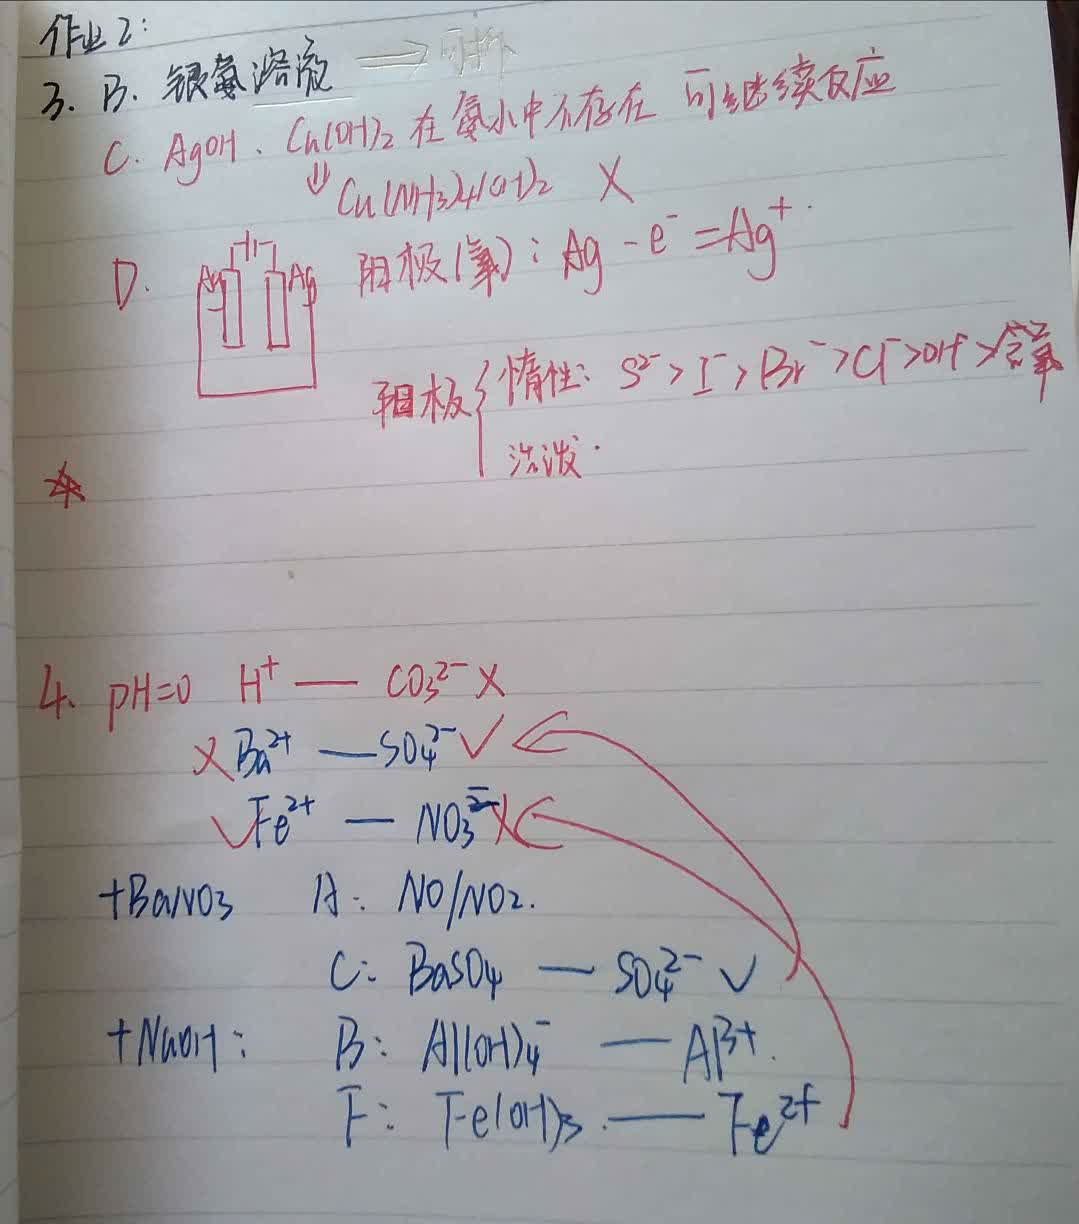 作业2:
3. B. 银氨溶液
C. AgOH、Cu(OH)2 在氨水中不存在 可继续反应
⇓ Cu(NH3)4(OH)2 X
D. Ag Ag 阳极(氧): Ag - e⁻ = Ag⁺
阳极 { 惰性: S²⁻ > I⁻ > Br⁻ > Cl⁻ > OH⁻ > 含氧
活泼.
4. pH=0 H⁺ — CO3²⁻ X
X Ba²⁺ — SO4²⁻ ✓
✓ Fe²⁺ — NO3⁻ X
+BaNO3 A: NO/NO2.
C: BaSO4 — SO4²⁻ ✓
+NaOH: B: Al(OH)4⁻ — Al³⁺.
F: Fe(OH)3. — Fe²⁺